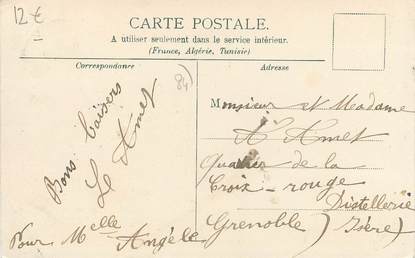 12€
CARTE POSTALE.
A utiliser seulement dans le service intérieur.
(France, Algérie, Tunisie)
Correspondance
Adresse
84
Bons baisers
Amet
Pour Melle Angèle
Monsieur et Madame
A Amet
Quartier de la
Croix-rouge
Distellerie
Grenoble) Isère)